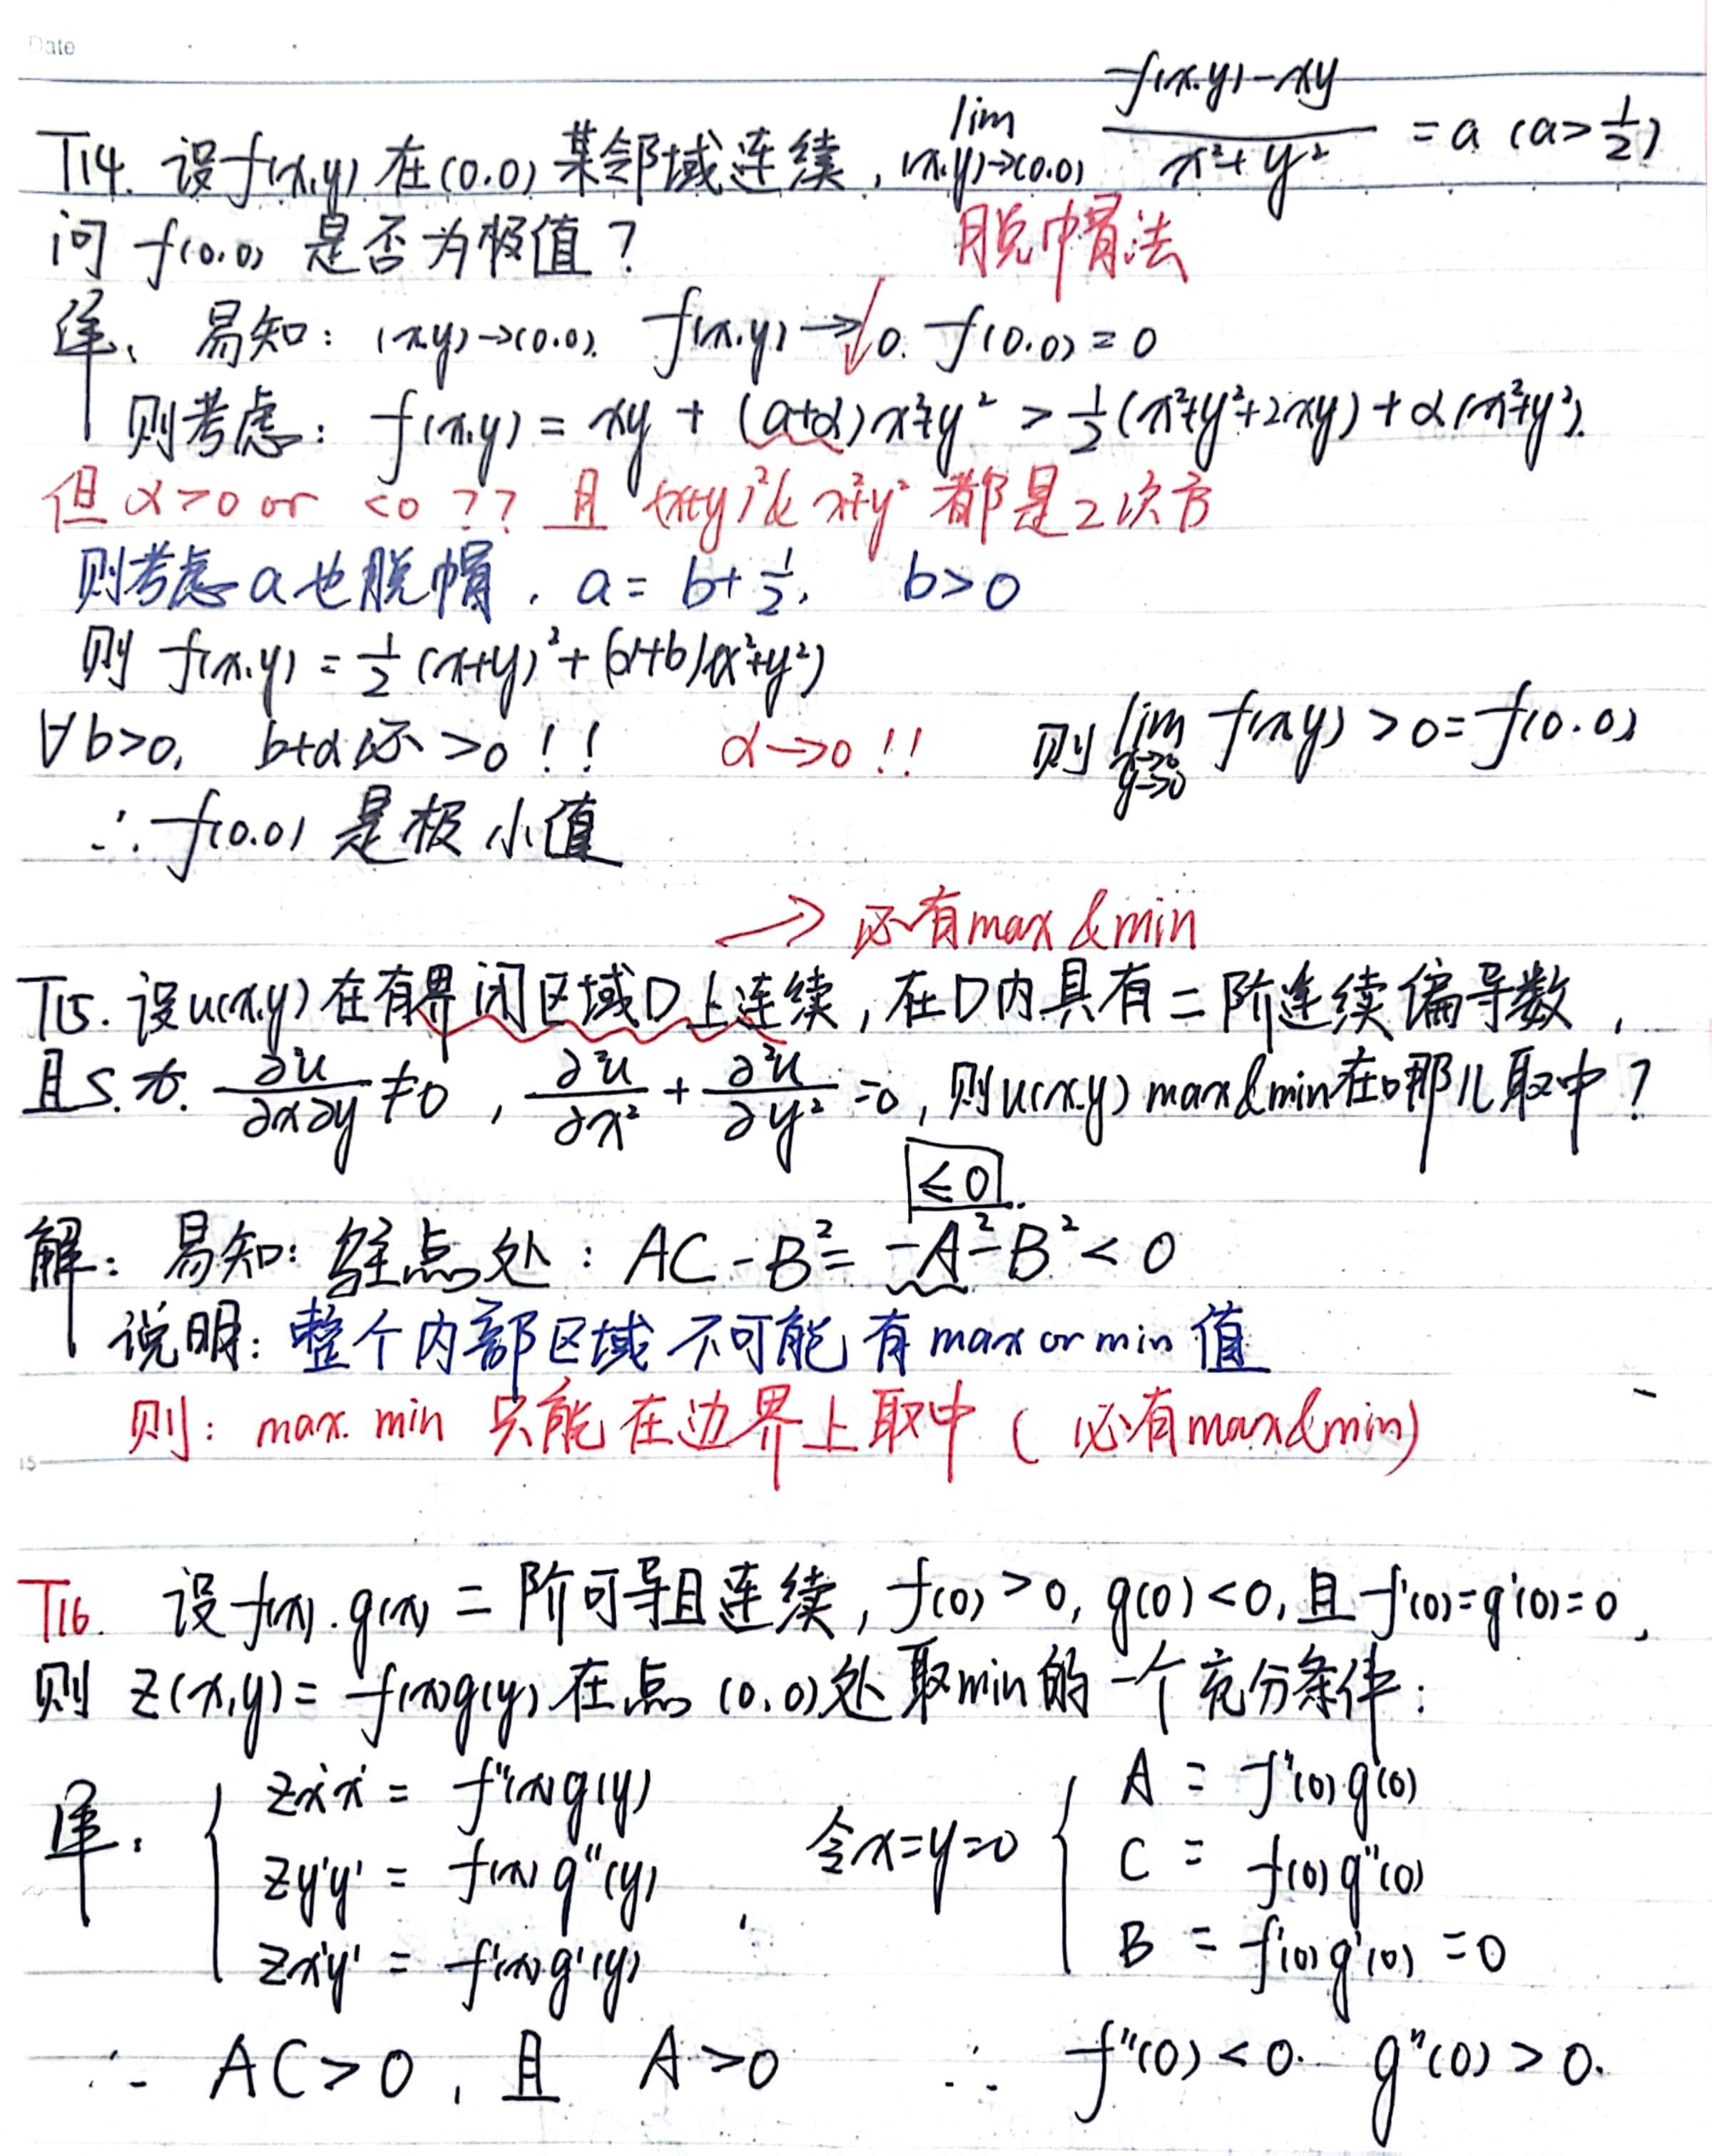 Date
T14. 设f(x,y)在(0.0)某邻域连续, lim (x.y)→(0.0) f(x.y)-xy / x²+y² = a (a>1/2)
问 f(0.0) 是否为极值?
脱帽法
解、易知: (x.y)→(0.0). f(x.y)→0. f(0.0)=0
则考虑: f(x.y) = xy + (a+α)x²+y² > 1/2(x²+y²+2xy)+α(x²+y²).
但α>0 or <0 ?? 且 (x+y)²& x²+y² 都是2次方
则考虑a也脱帽. a= b+1/2, b>0
则 f(x.y) = 1/2 (x+y)² + (α+b)(x²+y²)
∀b>0, b+α必>0!! α→0!! 则 lim x→0 y→0 f(x.y) >0=f(0.0)
∴ f(0.0) 是极小值
→ 必有max&min
T15. 设u(x.y)在有界闭区域D上连续,在D内具有二阶连续偏导数,
且s.t. ∂²u/∂x∂y ≠0, ∂²u/∂x² + ∂²u/∂y² =0, 则u(x.y) max&min在哪儿取中?
≤0
解: 易知: 驻点处: AC-B²= -A²-B²<0
说明: 整个内部区域不可能有max or min值
则: max. min 只能在边界上取中 (必有max&min)
15
T16. 设f(x).g(x)二阶可导且连续, f(0)>0, g(0)<0, 且f'(0)=g'(0)=0,
则 z(x,y)= f(x)g(y)在点(0,0)处取min的一个充分条件:
解: { zx'x' = f''(x)g(y) 令x=y=0 { A = f''(0)g(0)
zy'y' = f(x)g''(y) C = f(0)g''(0)
zx'y' = f'(x)g'(y) B = f'(0)g'(0) =0
∴ AC>0, 且 A>0 ∴ f''(0)<0. g''(0)>0.